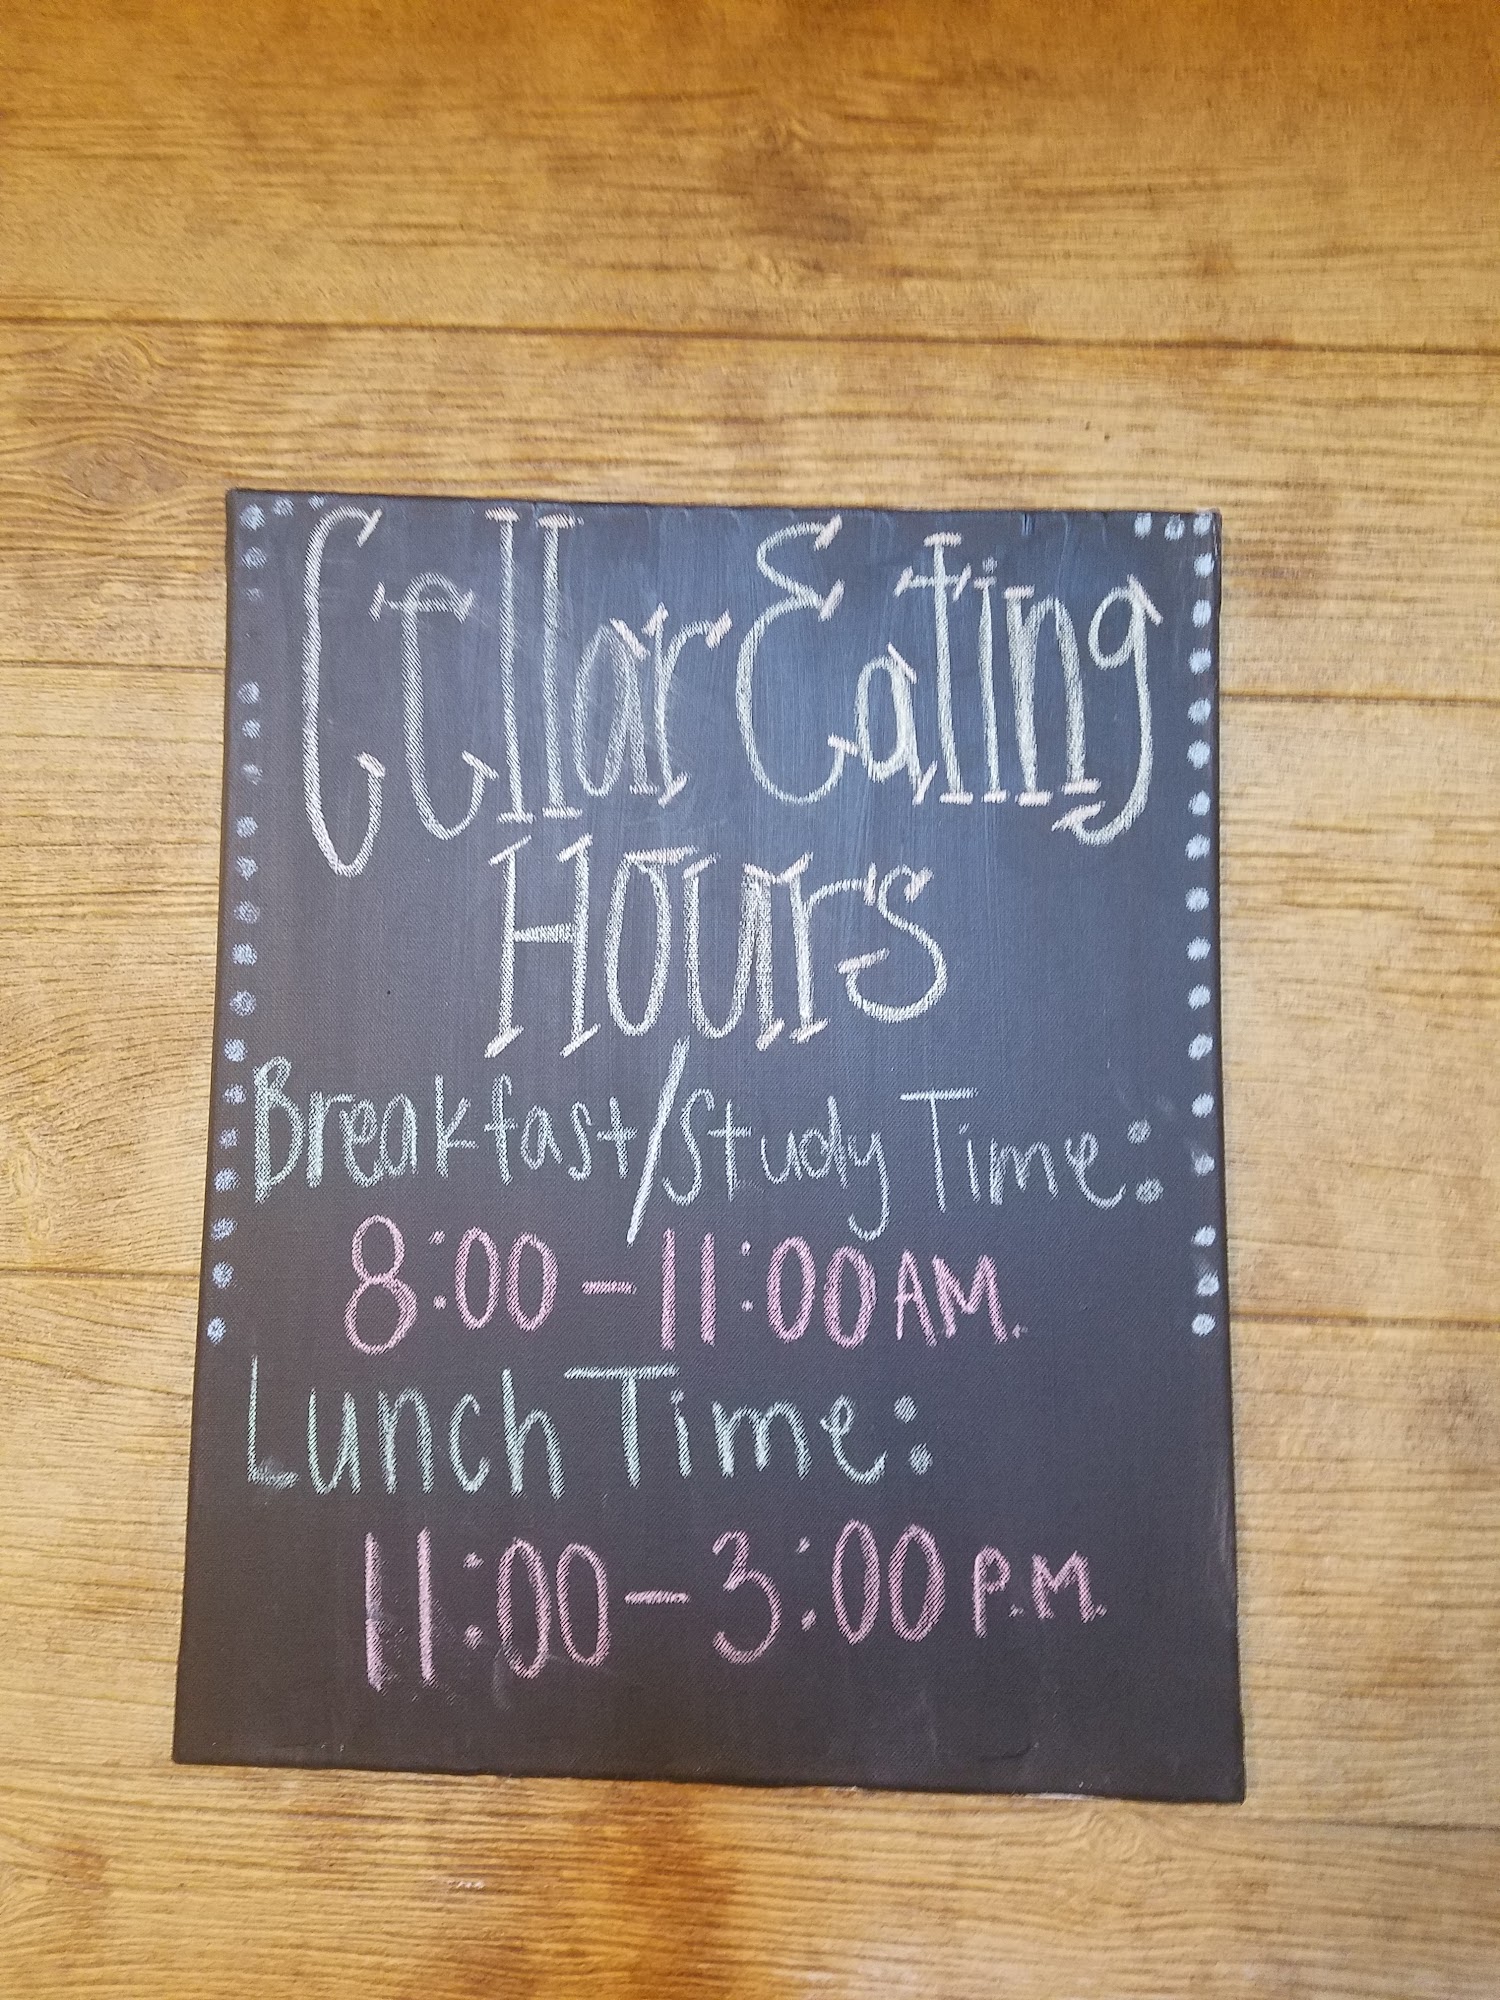 Cellar Eating
Hours
Breakfast/Study Time:
8:00-11:00 AM.
Lunch Time:
11:00-3:00 P.M.